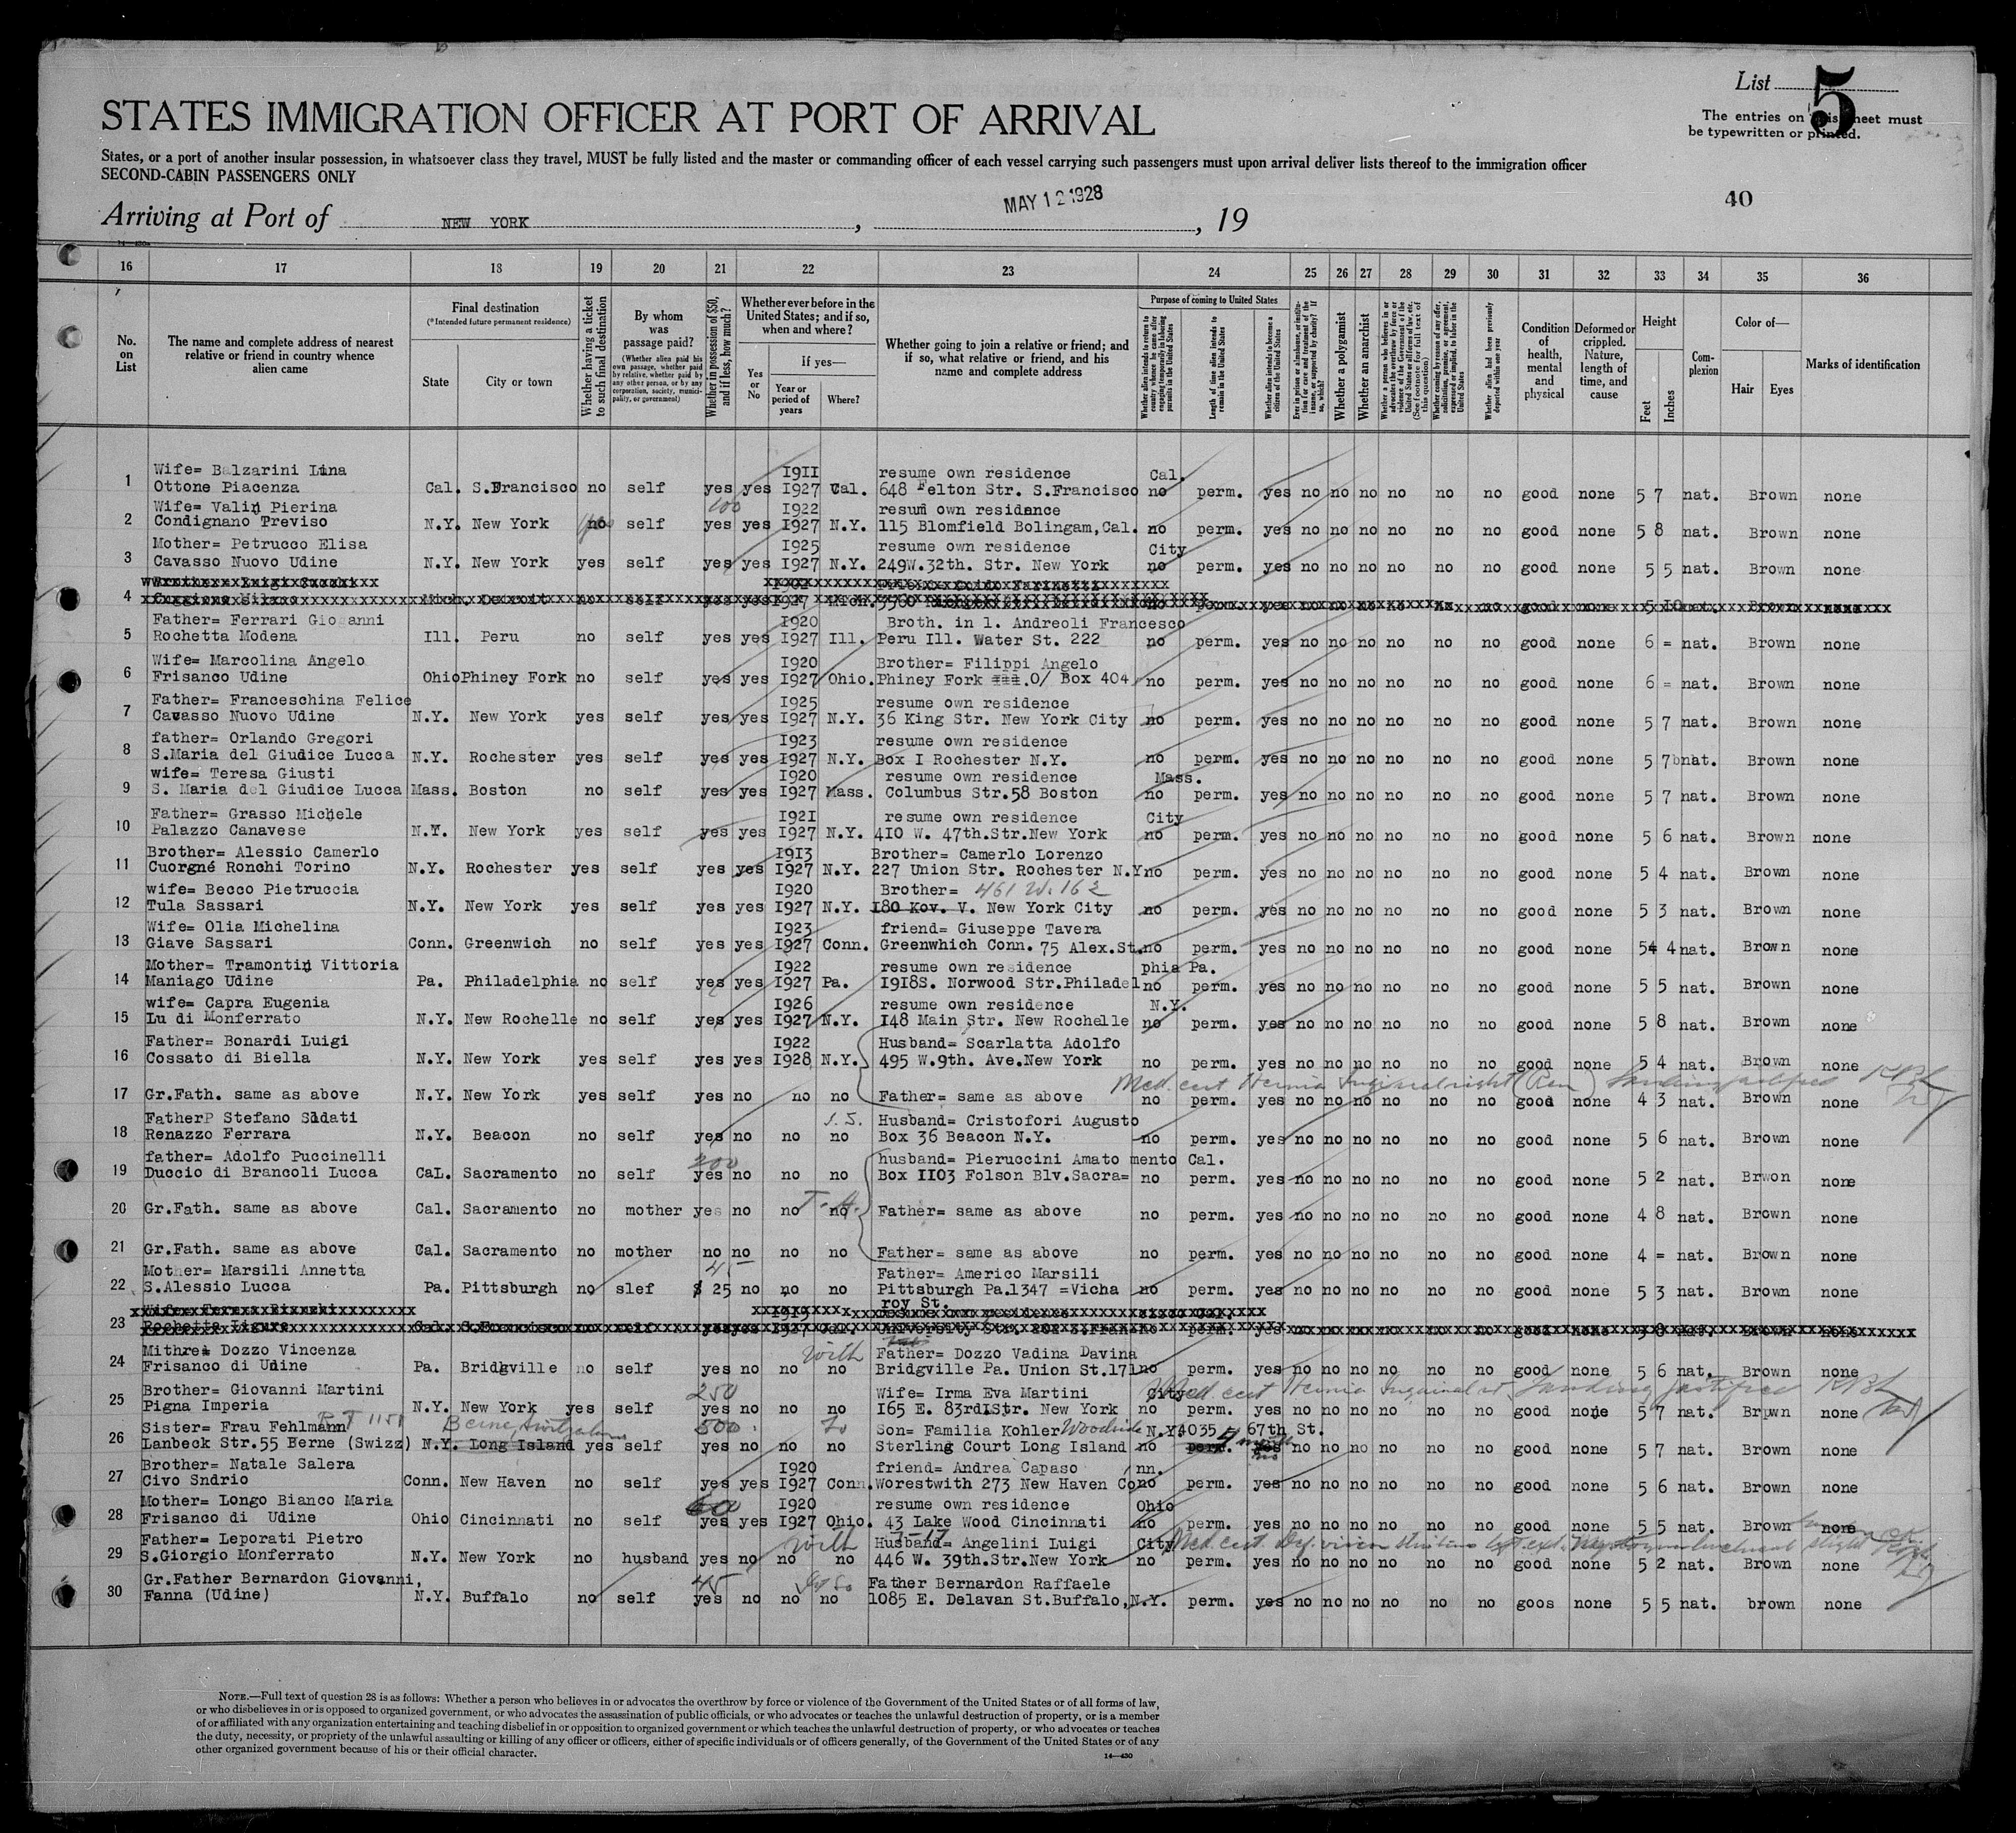 List 5
The entries on this sheet must
be typewritten or printed.
STATES IMMIGRATION OFFICER AT PORT OF ARRIVAL
States, or a port of another insular possession, in whatsoever class they travel, MUST be fully listed and the master or commanding officer of each vessel carrying such passengers must upon arrival deliver lists thereof to the immigration officer
SECOND-CABIN PASSENGERS ONLY
40
Arriving at Port of NEW YORK, MAY 12 1928, 19
16 17 18 19 20 21 22 23 24 25 26 27 28 29 30 31 32 33 34 35 36
No. on List
The name and complete address of nearest relative or friend in country whence alien came
Final destination
(*Intended future permanent residence)
State
City or town
Whether having a ticket to such final destination
By whom was passage paid?
(Whether alien paid his own passage, whether paid by relative, whether paid by any other person, or by any corporation, society, municipality, or government)
Whether in possession of $50, and if less, how much?
Whether ever before in the United States; and if so, when and where?
Yes or No
If yes—
Year or period of years
Where?
Whether going to join a relative or friend; and if so, what relative or friend, and his name and complete address
Purpose of coming to United States
Whether alien intends to return to country whence he came after engaging temporarily in laboring pursuits in the United States
Length of time alien intends to remain in the United States
Whether alien intends to become a citizen of the United States
Ever in prison or almshouse, or institution for care and treatment of the insane, or supported by charity? If so, which?
Whether a polygamist
Whether an anarchist
Whether a person who believes in or advocates the overthrow by force or violence of the Government of the United States or all forms of law, etc. (See footnote for full text of this question)
Whether coming by reason of any offer, solicitation, promise, or agreement, expressed or implied, to labor in the United States
Whether alien had been previously deported within one year
Condition of health, mental and physical
Deformed or crippled. Nature, length of time, and cause
Height
Feet
Inches
Complexion
Color of—
Hair
Eyes
Marks of identification
1 Wife= Balzarini Lina 1911 resume own residence Cal.
Ottone Piacenza Cal. S.Francisco no self yes yes 1927 Cal. 648 Felton Str. S.Francisco no perm. yes no no no no no no good none 5 7 nat. Brown none
2 Wife= Valin Pierina 100 1922 resum own residance
Condignano Treviso N.Y. New York no self yes yes 1927 N.Y. 115 Blomfield Bolingam,Cal. no perm. yes no no no no no no good none 5 8 nat. Brown none
3 Mother= Petrucco Elisa 1925 resume own residence City
Cavasso Nuovo Udine N.Y. New York yes self yes yes 1927 N.Y. 249W.32th. Str. New York no perm. yes no no no no no no good none 5 5 nat. Brown none
4
5 Father= Ferrari Giovanni 1920 Broth. in l. Andreoli Francesco
Rochetta Modena Ill. Peru no self yes yes 1927 Ill. Peru Ill. Water St. 222 no perm. yes no no no no no no good none 6 = nat. Brown none
6 Wife= Marcolina Angelo 1920 Brother= Filippi Angelo
Frisanco Udine Ohio Phiney Fork no self yes yes 1927 Ohio. Phiney Fork .O/ Box 404 no perm. yes no no no no no no good none 6 = nat. Brown none
7 Father= Franceschina Felice 1925 resume own residence
Cavasso Nuovo Udine N.Y. New York yes self yes yes 1927 N.Y. 36 King Str. New York City no perm. yes no no no no no no good none 5 7 nat. Brown none
8 father= Orlando Gregori 1923 resume own residence
S.Maria del Giudice Lucca N.Y. Rochester yes self yes yes 1927 N.Y. Box I Rochester N.Y. no perm. yes no no no no no no good none 5 7 nat. Brown none
9 wife= Teresa Giusti 1920 resume own residence Mass.
S. Maria del Giudice Lucca Mass. Boston no self yes yes 1927 Mass. Columbus Str.58 Boston no perm. yes no no no no no no good none 5 7 nat. Brown none
10 Father= Grasso Michele 1921 resume own residence City
Palazzo Canavese N.Y. New York yes self yes yes 1927 N.Y. 410 W. 47th.Str.New York no perm. yes no no no no no no good none 5 6 nat. Brown none
11 Brother= Alessio Camerlo 1913 Brother= Camerlo Lorenzo
Cuorgné Ronchi Torino N.Y. Rochester yes self yes yes 1927 N.Y. 227 Union Str. Rochester N.Y no perm. yes no no no no no no good none 5 4 nat. Brown none
12 wife= Becco Pietruccia 1920 Brother= 461 W. 162
Tula Sassari N.Y. New York yes self yes yes 1927 N.Y. 180 Kov. V. New York City no perm. yes no no no no no no good none 5 3 nat. Brown none
13 Wife= Olia Michelina 1923 friend= Giuseppe Tavera
Giave Sassari Conn. Greenwich no self yes yes 1927 Conn. Greenwhich Conn. 75 Alex.St. no perm. yes no no no no no no good none 54 4 nat. Brown none
14 Mother= Tramontin Vittoria 1922 resume own residence phia Pa.
Maniago Udine Pa. Philadelphia no self yes yes 1927 Pa. 1918S. Norwood Str.Philadel no perm. yes no no no no no no good none 5 5 nat. Brown none
15 wife= Capra Eugenia 1926 resume own residence N.Y.
Lu di Monferrato N.Y. New Rochelle no self yes yes 1927 N.Y. 148 Main Str. New Rochelle no perm. yes no no no no no no good none 5 8 nat. Brown none
16 Father= Bonardi Luigi 1922 Husband= Scarlatta Adolfo
Cossato di Biella N.Y. New York yes self yes yes 1928 N.Y. 495 W.9th. Ave.New York no perm. yes no no no no no no good none 5 4 nat. Brown none
Med. cert Hernia Inguinal right (Ren) Landing justified
17 Gr.Fath. same as above N.Y. New York yes self yes no no no Father= same as above no perm. yes no no no no no no good none 4 3 nat. Brown none
18 FatherP Stefano Sddati Husband= Cristofori Augusto
Renazzo Ferrara N.Y. Beacon no self yes no no no Box 36 Beacon N.Y. no perm. yes no no no no no no good none 5 6 nat. Brown none
19 father= Adolfo Puccinelli 200 husband= Pieruccini Amato mento Cal.
Duccio di Brancoli Lucca CaL. Sacramento no self yes no no no Box 1103 Folson Blv.Sacra= no perm. yes no no no no no no good none 5 2 nat. Brwon none
20 Gr.Fath. same as above Cal. Sacramento no mother yes no no no Father= same as above no perm. yes no no no no no no good none 4 8 nat. Brown none
21 Gr.Fath. same as above Cal. Sacramento no mother no no no no Father= same as above no perm. yes no no no no no no good none 4 = nat. Brown none
22 Mother= Marsili Annetta 45 Father= Americo Marsili
S.Alessio Lucca Pa. Pittsburgh no slef $ 25 no no no Pittsburgh Pa.1347 =Vicha no perm. yes no no no no no no good none 5 3 nat. Brown none
roy St.
23
24 Dozzo Vincenza With Father= Dozzo Vadina Davina
Frisanco di Udine Pa. Bridgville no self yes no no no Bridgville Pa. Union St.171 no perm. yes no no no no no no good none 5 6 nat. Brown none
25 Brother= Giovanni Martini 250 Wife= Irma Eva Martini City Med. cert Hernia Inguinal rt. Landing justified
Pigna Imperia N.Y. New York yes self yes no no no 165 E. 83rd Str. New York no perm. yes no no no no no no good none 5 7 nat. Brown none
26 Sister= Frau Fehlmann Berne, 500 Son= Familia Kohler Woodside N.Y. 4035 67th St.
Lanbeck Str.55 Berne (Swizz) N.Y. Long Island yes self yes no no no Sterling Court Long Island no perm. yes no no no no no no good none 5 7 nat. Brown none
27 Brother= Natale Salera 1920 friend= Andrea Capaso nn.
Civo Sndrio Conn. New Haven no self yes yes 1927 Conn. Worestwith 273 New Haven Co no perm. yes no no no no no no good none 5 6 nat. Brown none
28 Mother= Longo Bianco Maria 60 1920 resume own residence Ohio
Frisanco di Udine Ohio Cincinnati no self yes yes 1927 Ohio. 43 Lake Wood Cincinnati no perm. yes no no no no no no good none 5 5 nat. Brown none
29 Father= Leporati Pietro With Husband= Angelini Luigi City Med. cert. Def. vision
S.Giorgio Monferrato N.Y. New York no husband yes no no no 446 W. 39th.Str.New York no perm. yes no no no no no no good none 5 2 nat. Brown none
30 Gr.Father Bernardon Giovanni, 45 Father Bernardon Raffaele
Fanna (Udine) N.Y. Buffalo no self yes no no no 1085 E. Delavan St.Buffalo,N.Y. perm. yes no no no no no no goos none 5 5 nat. brown none
NOTE.—Full text of question 28 is as follows: Whether a person who believes in or advocates the overthrow by force or violence of the Government of the United States or of all forms of law,
or who disbelieves in or is opposed to organized government, or who advocates the assassination of public officials, or who advocates or teaches the unlawful destruction of property, or is a member
of or affiliated with any organization entertaining and teaching disbelief in or opposition to organized government or which teaches the unlawful destruction of property, or who advocates or teaches
the duty, necessity, or propriety of the unlawful assaulting or killing of any officer or officers, either of specific individuals or of officers generally, of the Government of the United States or of any
other organized government because of his or their official character.
14—430